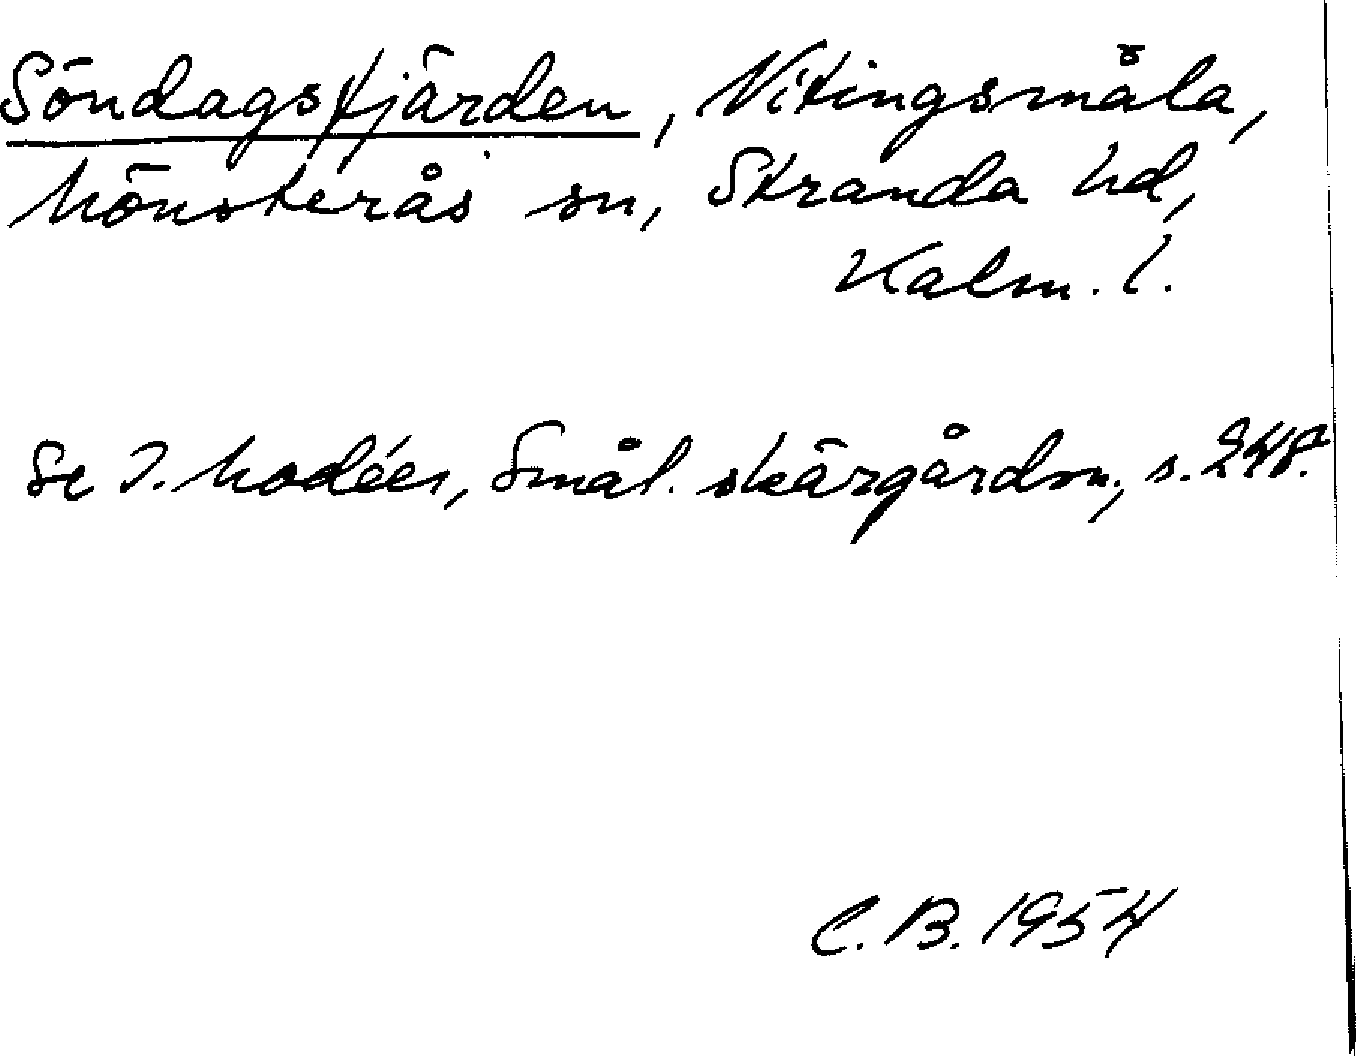 Söndagsfjärden, Vikingsmåla,
Mönsterås sn, Stranda hd,
Kalm. l.
Se I. Modéer, Smål. skärgårdsn., s. 248.
C. B. 1954